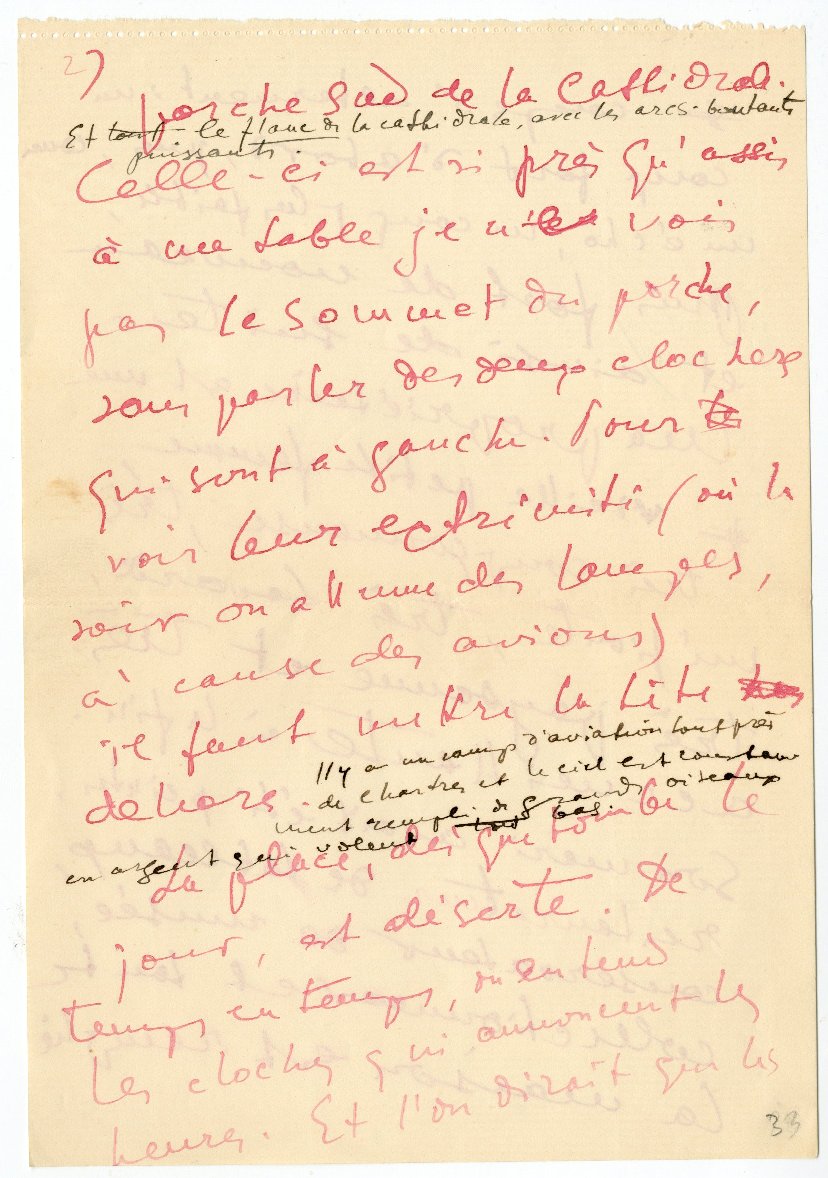 2)
porche Sud de la Cathédrale.
Et tout – le flanc de la cathédrale, avec les arcs-boutants
puissants.
Celle-ci est si près qu'assis
à une table je n'en vois
pas le sommet du porche,
sans parler des deux clochers
qui sont à gauche. Pour
voir leur extrémité (où le
soir on allume des lampes,
à cause des avions)
il faut mettre la tête
dehors.
Il y a un camp d'aviation tout près
de Chartres et le ciel est constam
ment rempli de grands oiseaux
en argent qui volent bas.
La place, dès que tombe le
jour, est déserte. De
temps en temps, on entend
les cloches qui annoncent les
heures. Et l'on dirait que les
33